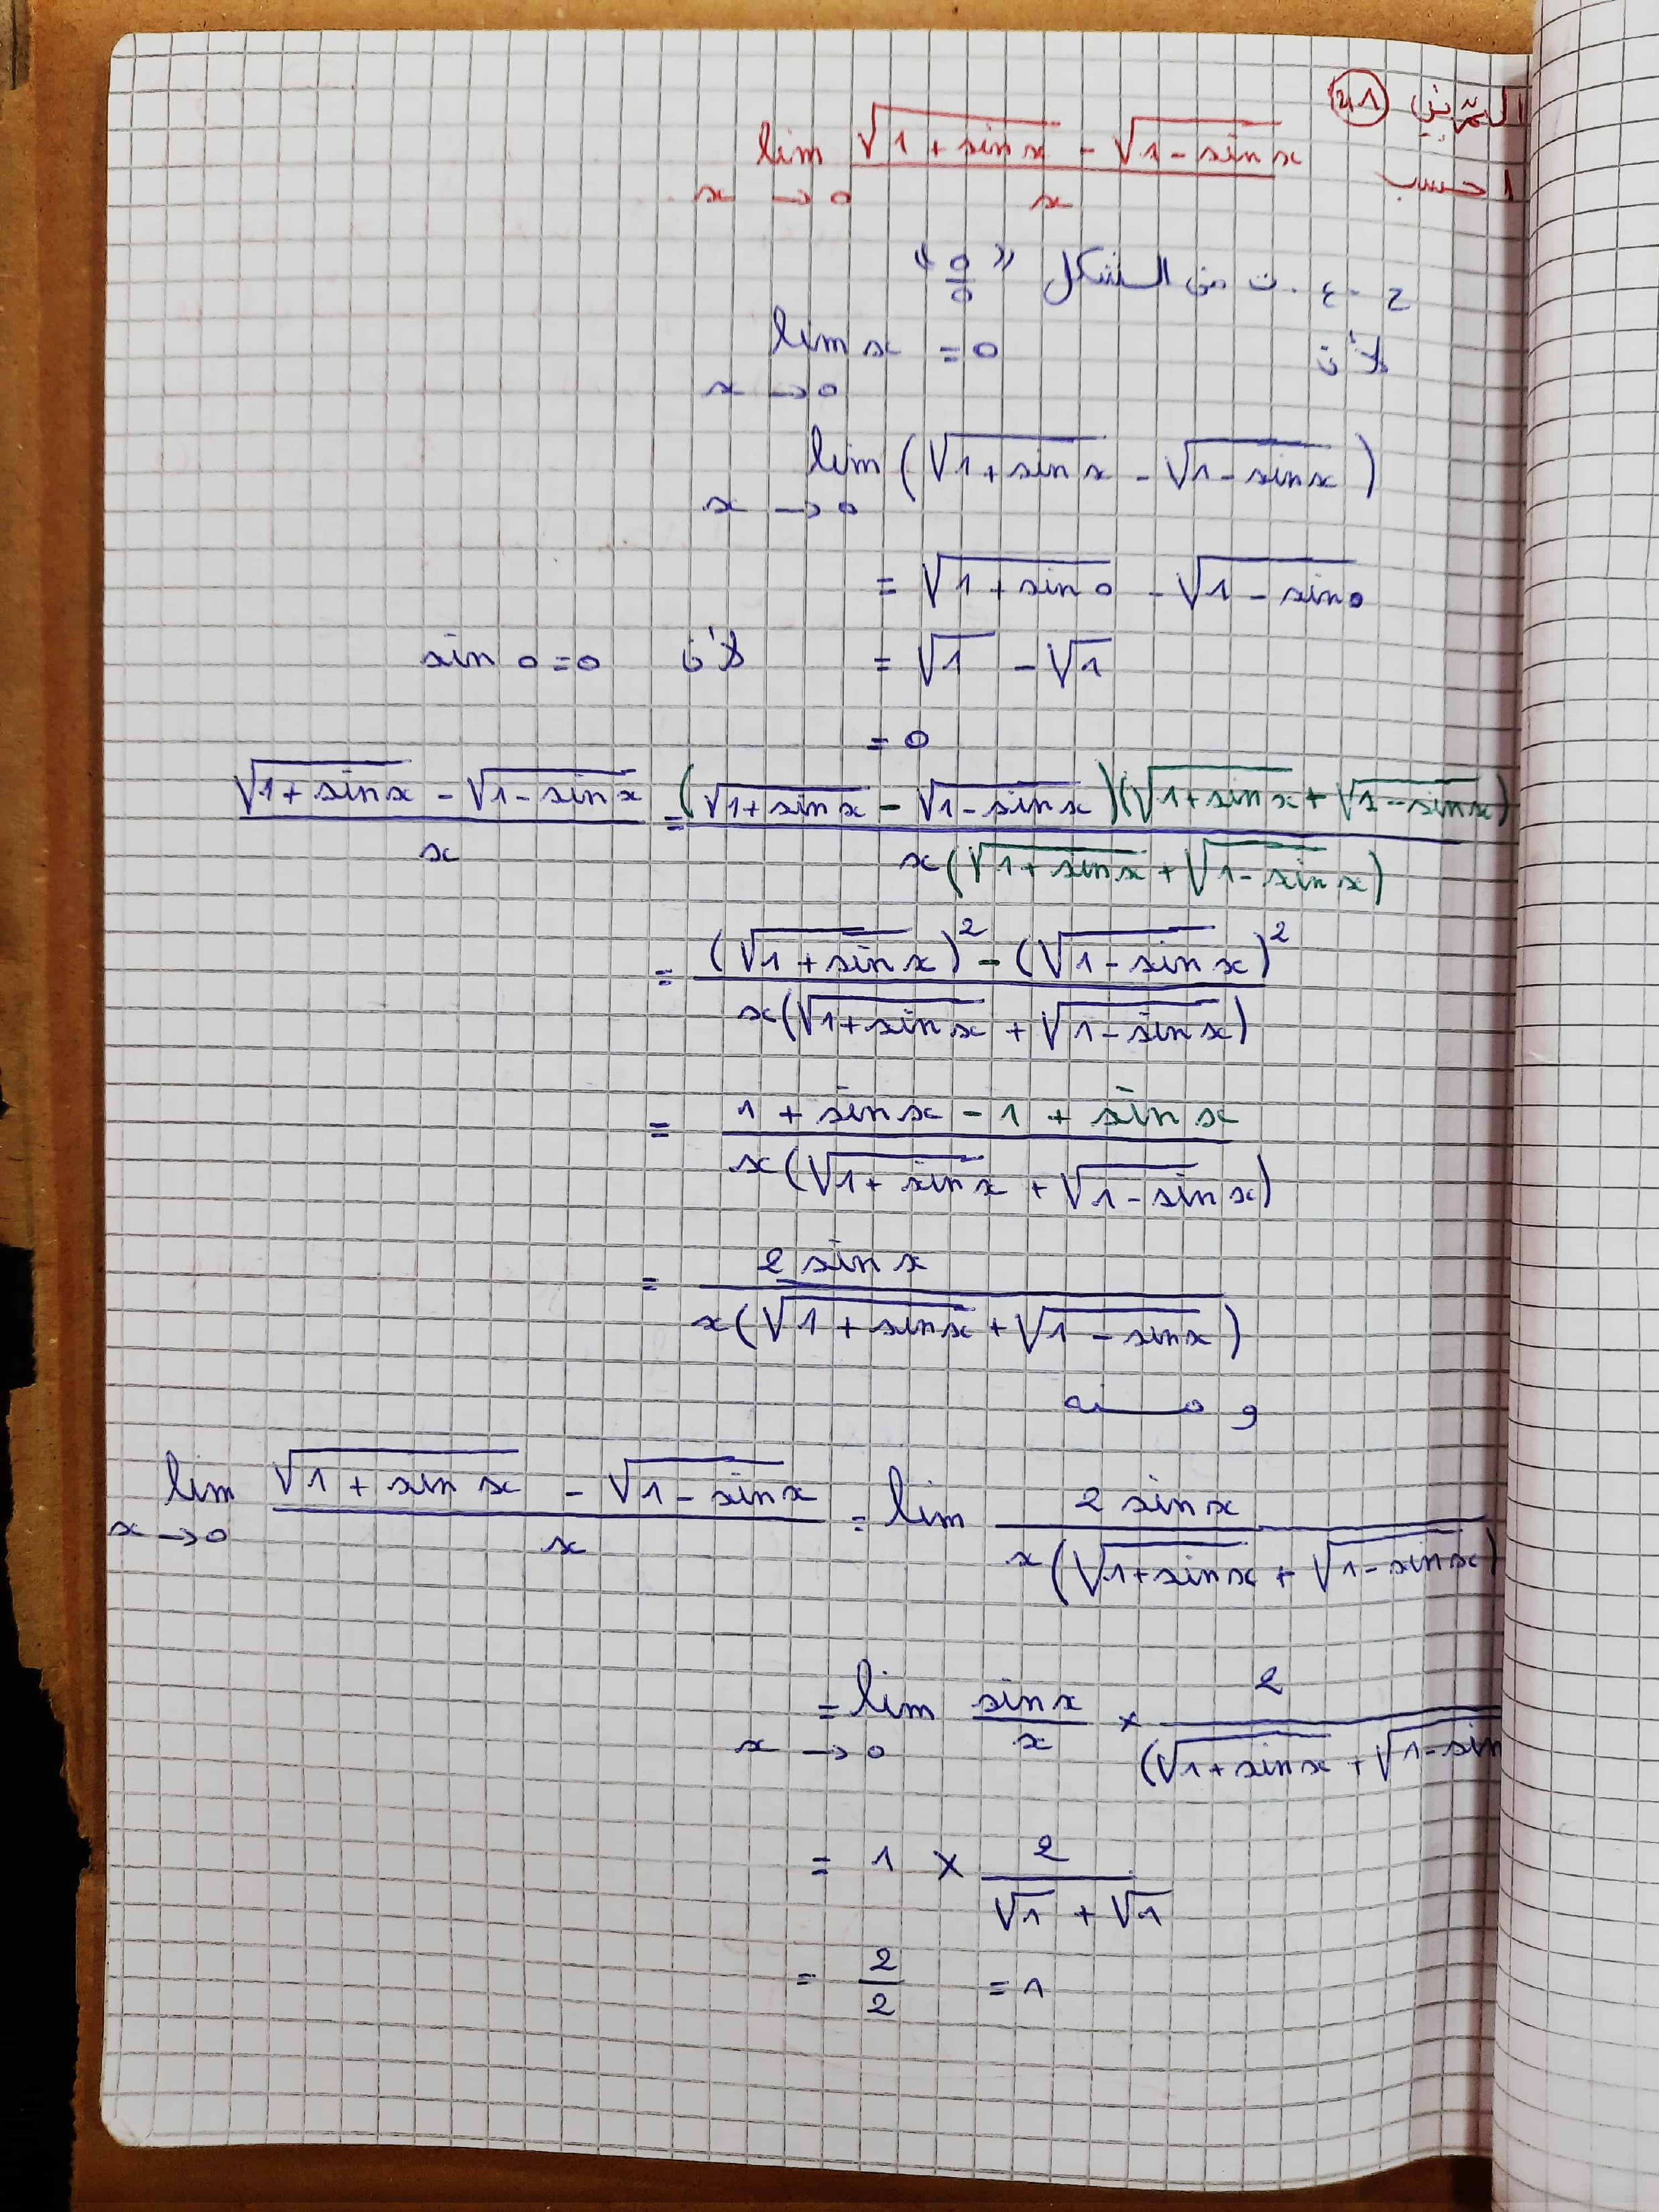 التمرين 41
احسب lim x→0 (√(1+sin x) - √(1-sin x)) / x
ح.ع.ت من الشكل "0/0"
لأن lim x→0 x = 0
lim x→0 (√(1+sin x) - √(1-sin x))
= √(1+sin 0) - √(1-sin 0)
= √1 - √1 لأن sin 0 = 0
= 0
(√(1+sin x) - √(1-sin x)) / x = (√(1+sin x) - √(1-sin x))(√(1+sin x) + √(1-sin x)) / x(√(1+sin x) + √(1-sin x))
= ((√(1+sin x))² - (√(1-sin x))²) / x(√(1+sin x) + √(1-sin x))
= (1 + sin x - 1 + sin x) / x(√(1+sin x) + √(1-sin x))
= 2 sin x / x(√(1+sin x) + √(1-sin x))
و منه
lim x→0 (√(1+sin x) - √(1-sin x)) / x = lim 2 sin x / x(√(1+sin x) + √(1-sin x))
= lim x→0 sin x / x × 2 / (√(1+sin x) + √(1-sin
= 1 × 2 / (√1 + √1)
= 2/2 = 1